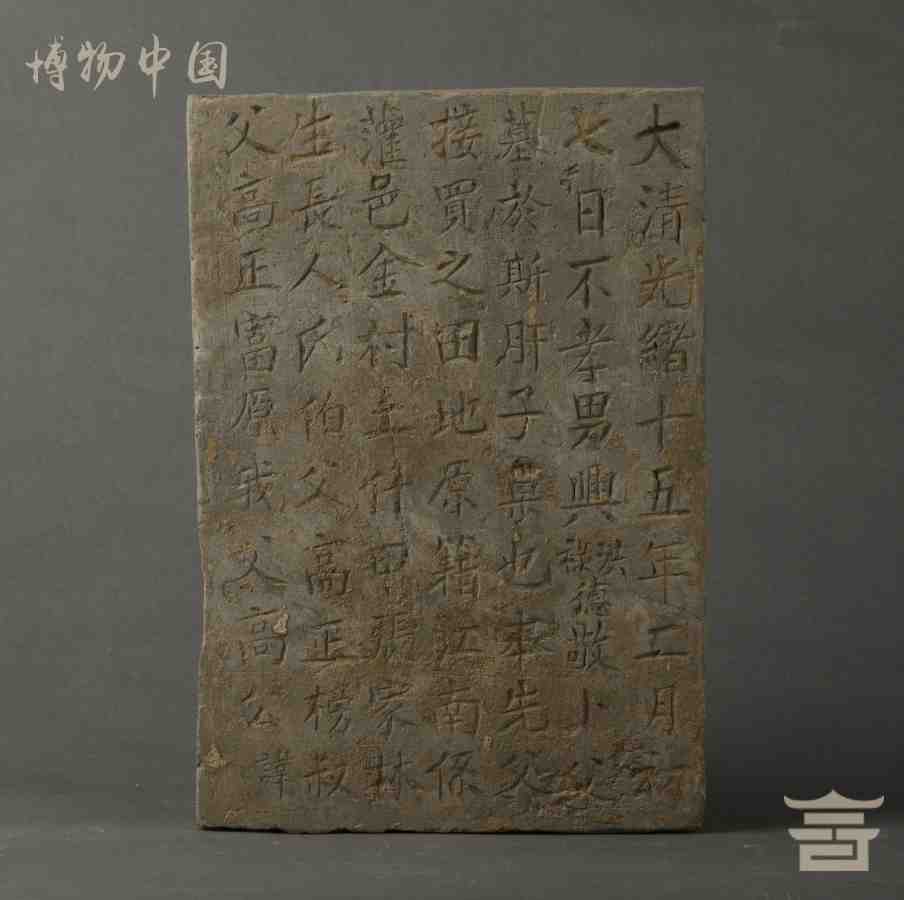 博物中国
大清光緒十五年二月初
七日不孝男興洪祿德敬卜父
墓於斯肝子窠也本先父
接買之田地原籍江南係
蓮邑金村土竹甲張家林
生長人氏伯父高正榜叔
父高正富原我父高公諱